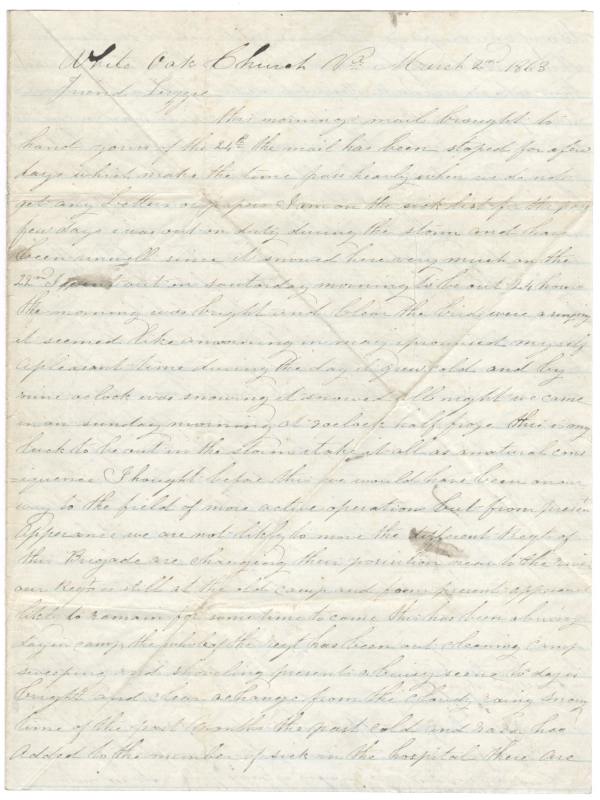 White Oak Church Va March 2nd 1863
Friend Lizzie
this mornings mail brought to
hand yours of the 24th the mail has been stoped for a few
days which make the time pass heavly when we do not
get any Letters or papers I am on the sick list for the past
few days I was out on duty during the storm and have
been unwell since it snowed here very much on the
22nd I went out on Saturday morning to be out 24 hours
the morning was bright and clear the birds were a singing
it seemed like a morning in may I promised myself
a pleasant time during the day it grew cold and by
nine oclock was snowing it snowed all night we came
in on sunday morning at oclock half froze this is my
luck to be out in the storm I take it all as a natural cons
=iquence I thought before this we would have been on our
way to the field of more active operations but from presen
apperance we are not likly to move the different Regts of
this Brigade are changing their posision near to the
our Regt is still at the old camp and from present apperance
likly to remain for some time to come this has been a buisy
day in camp the whole of the regt has been out cleaning camp
sweeping and shoveling presents a buisy scene to day is
bright and clear a change from the cloudy raing snowy
time of the past months the past cold and has
added to the number of sick in the hospital there are